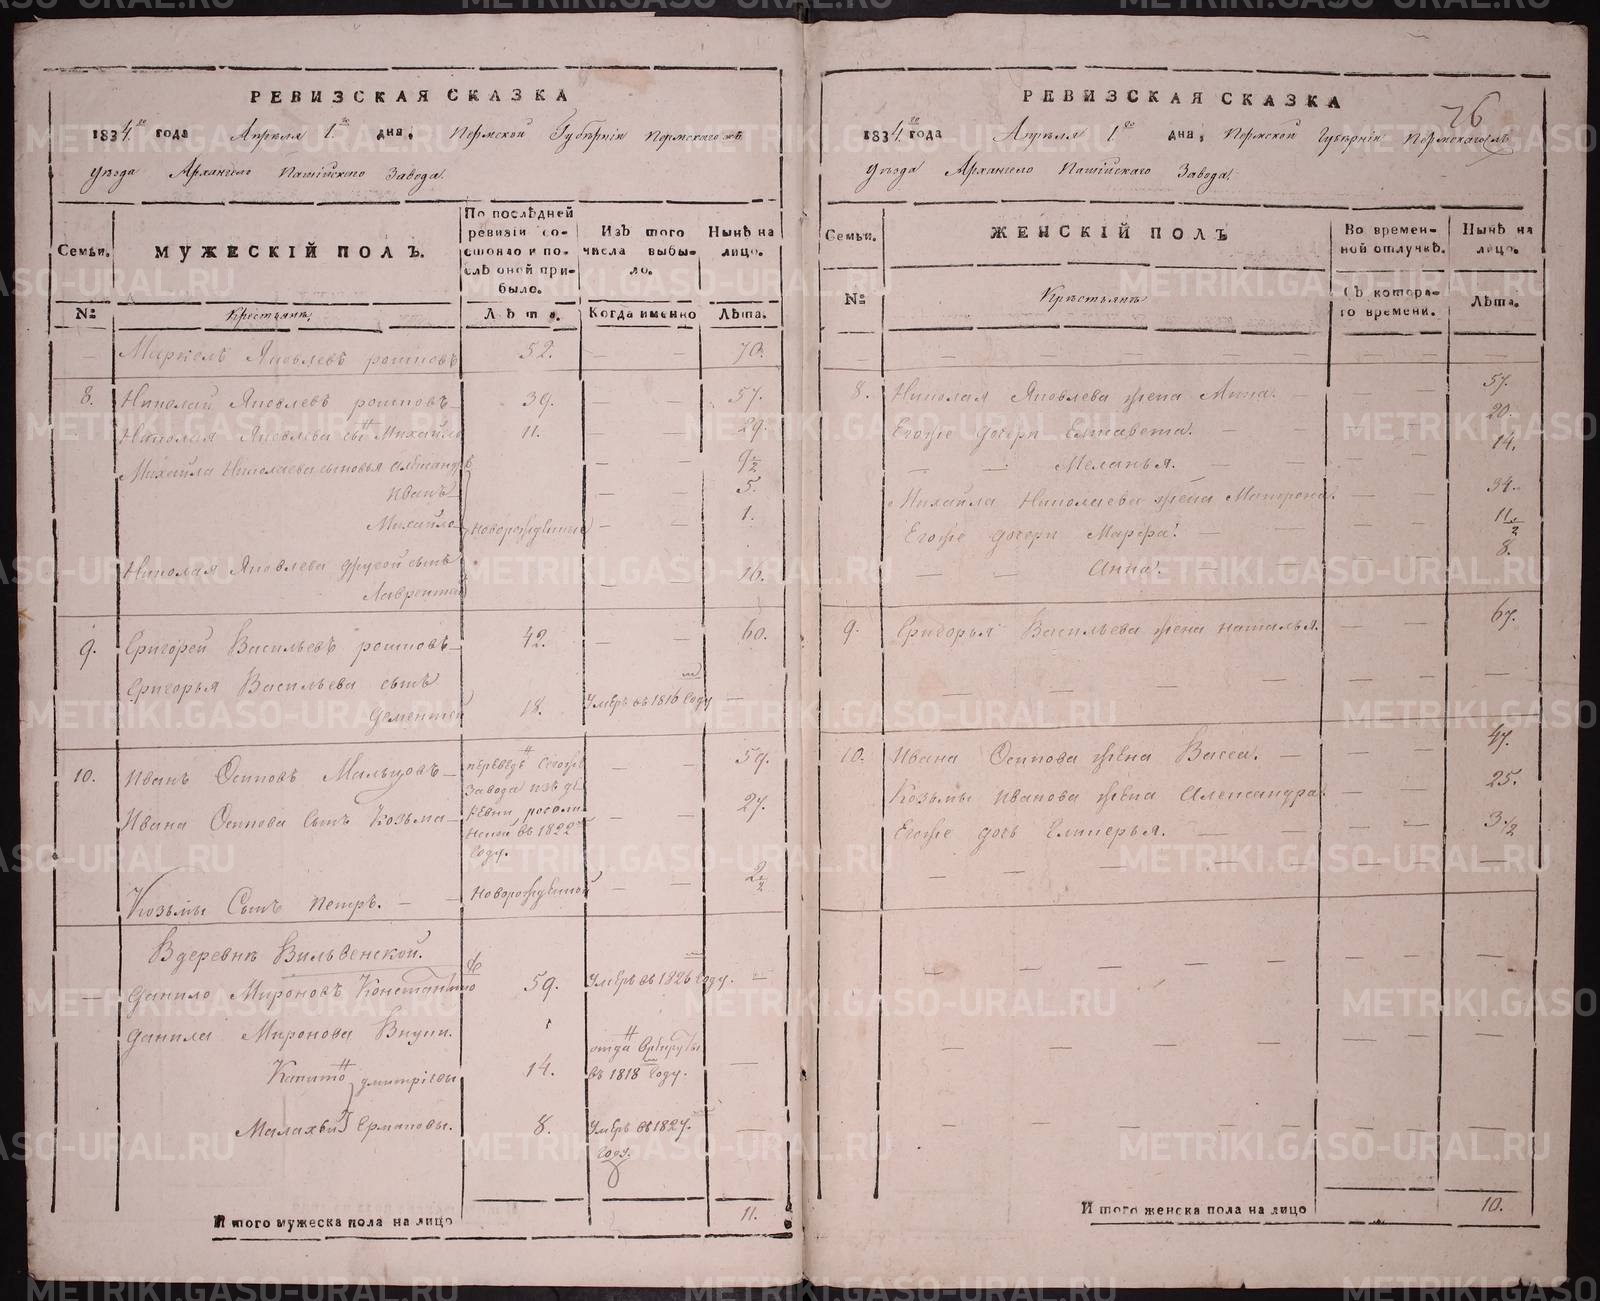 РЕВИЗСКАЯ СКАЗКА
1834го года Апреля 1го дня, Пермской Губернiи Пермскагожъ
уезда Архангело Пашiйскаго Завода.
Семьи.
МУЖЕСКIЙ ПОЛЪ.
По послѣдней ревизiи состояло и послѣ оной прибыло.
Изъ того числа выбыло.
Нынѣ на лицо.
№
Крестьянъ.
Лѣта.
Когда именно
Лѣта.
— Маркелъ Яковлевъ ростовъ 52. — — 70.
8. Николай Яковлевъ ростовъ 39. — — 57.
Николая Яковлева сынъ Михайло 11. — — 29.
Михайла Николаева сыновья александръ — — 9 1/2
Иванъ — — 5.
Михайло новорожденные — — 1.
Николая Яковлева другой сынъ
Лаврентей — — 16.
9. Григорей Васильевъ ростовъ 42. — — 60.
Григорья Васильева сынъ
Дементей 18. Умеръ въ 1816 году —
10. Иванъ Осиповъ Мальцовъ — — 59.
Ивана Осипова Сынъ Козьма — — 27.
переведенъ сегожъ
Завода изъ де
ревни
въ 1822
году.
Козьмы Сынъ Петръ. — — новорожденной — — 2 1/2
Вдеревнѣ Вильвенской.
— Данило Мироновъ Константино 59. Умеръ въ 1826 году. —
Данила Миронова Внуки.
Капитонъ Дмитрiевы 14. отданъ врекруты
въ 1818 году. —
Малахей Ермаковы. 8. Умеръ въ 1827.
году. —
И того мужеска пола на лицо 11.
РЕВИЗСКАЯ СКАЗКА
76
1834го года Апреля 1го дня, Пермской Губернiи Пермскагожъ
уезда Архангело Пашiйскаго Завода.
Семьи.
ЖЕНСКIЙ ПОЛЪ
Во временной отлучкѣ.
Нынѣ на лицо.
№
Крестьянъ
Съ котораго времени.
Лѣта.
8. Николая Яковлева жена Анна. — — — 57.
Егоже дочери Елисавета. — — — 20.
— — Меланья. — — — 14.
Михайла Николаева жена Матрона. — — 34.
Егоже дочери Марфа. — — — 11 1/2
— — Анна. — — — 8.
9. Григорья Васильева жена наталья. — — 67.
10. Ивана Осипова жена Васса. — — — 47.
Козьмы Иванова жена Александра. — — 25.
Егоже дочь Гликерья. — — — 3 1/2
И того женска пола на лицо 10.
METRIKI.GASO-URAL.RU